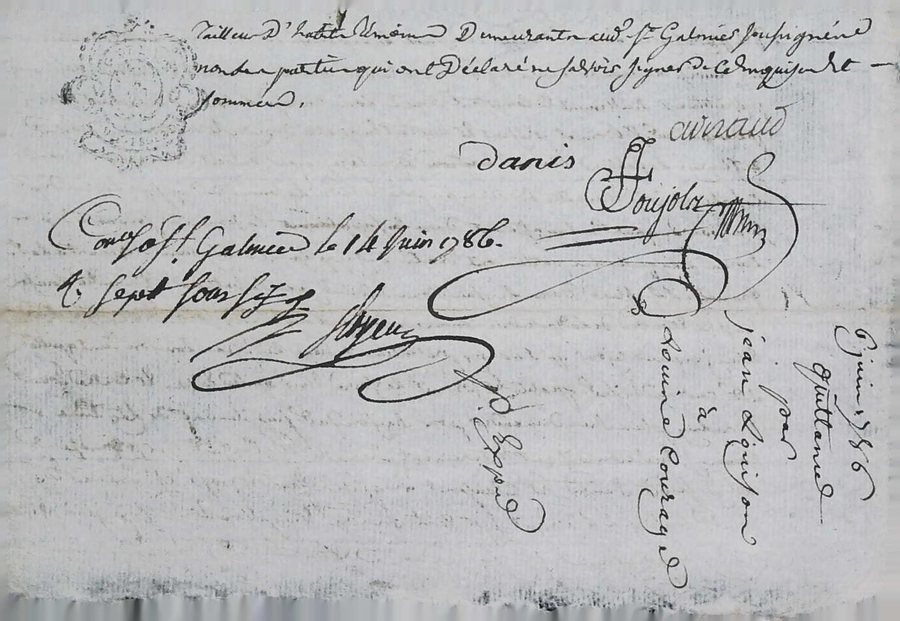 Tailleur D'habits Demeurants aud. St Galmier soussignés
non les parties qui ont Déclaré ne savoir signer de ce Enquis et
sommées.
arnaud
danis
Poujolz
Con^lé à St. Galmier le 14 Juin 1786.
R. sept sous
P. Exped
6 juin 1786
quittance
par
jean Louison
à
Louise Courage